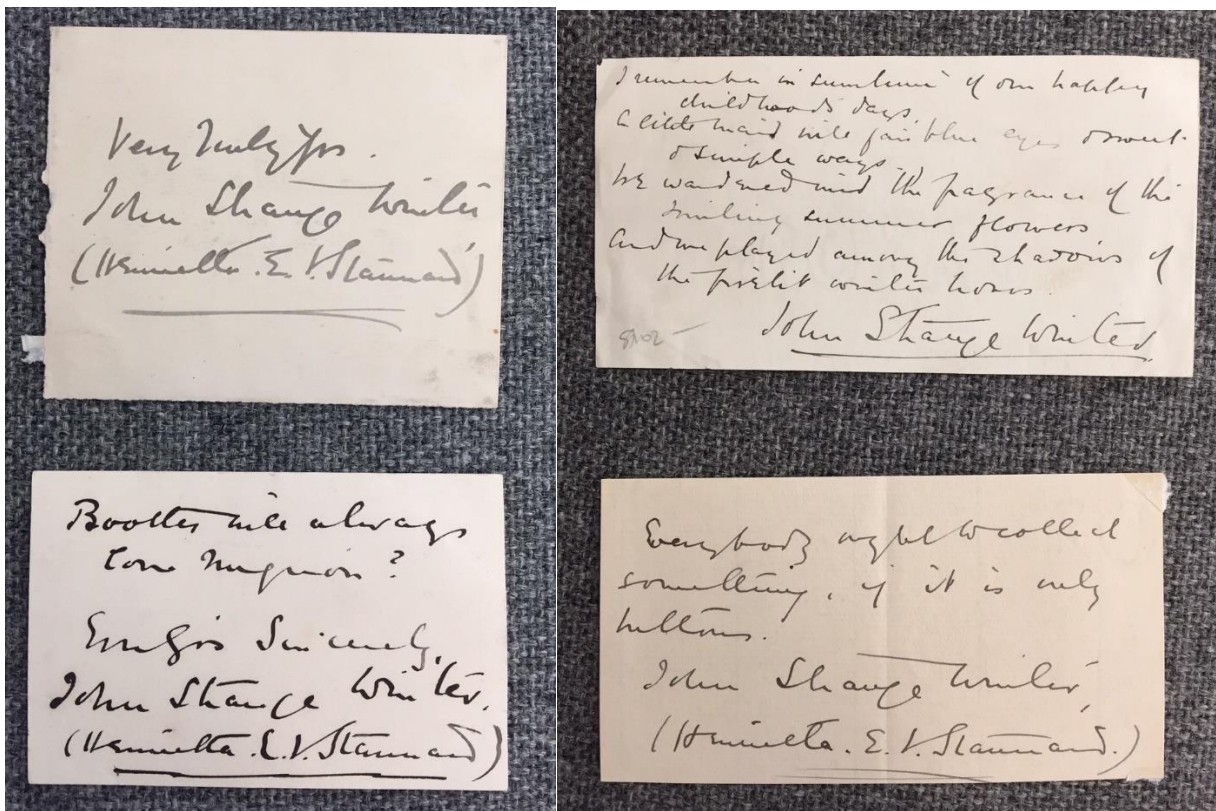 Very truly yrs.
John Strange Winter
(Henrietta. E. V. Stannard)
Bootles will always
love Mignon?
Sincerely,
John Strange Winter.
(Henrietta. E. V. Stannard)
I remember in sunshine of our happy
childhoods days,
A little maid with fair blue eyes & sweet
& simple ways.
We wandered mid the fragrance of the
smiling summer flowers
And we played among the shadows of
the firelit winter hours.
John Strange Winter.
Everybody ought to collect
something, if it is only
buttons.
John Strange Winter,
(Henrietta. E. V. Stannard.)